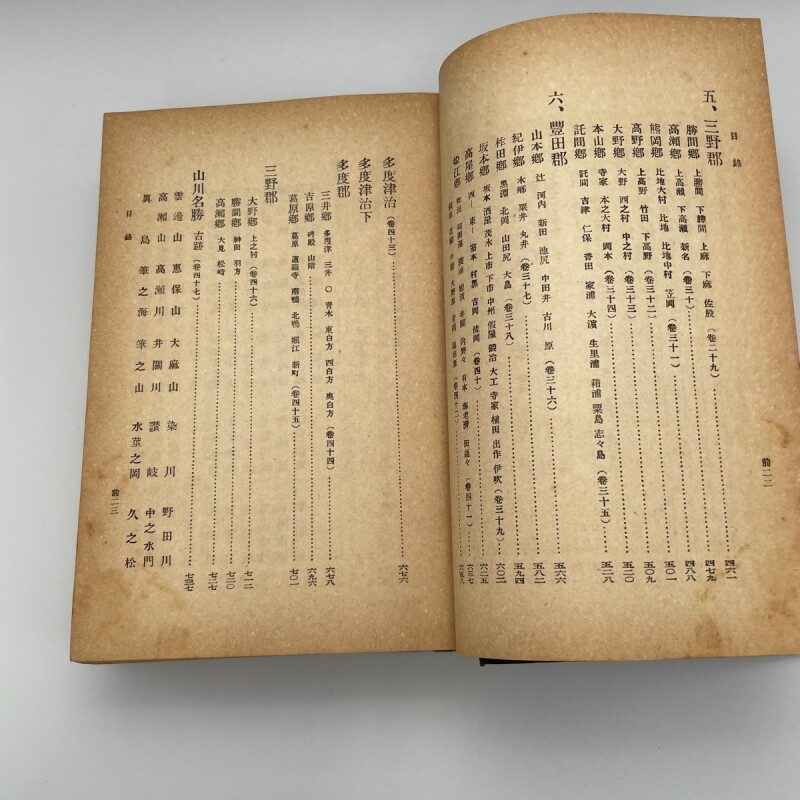 目錄
五、三野郡
勝間鄕 上勝間 下勝間 上麻 下麻 佐股 (卷二十九)……四七九
高瀨鄕 上高瀨 下高瀨 新名 (卷三十)……四八八
熊岡鄕 比地大村 比地 比地中村 笠岡 (卷三十一)……五〇一
高野鄕 上高野 竹田 下高野 (卷三十二)……五〇九
大野鄕 大野 西之村 中之村 (卷三十三)……五二〇
本山鄕 寺家 本之大村 岡本 (卷三十四)……五二八
託間鄕 託間 吉津 仁保 香田 家浦 大濱 生里浦 箱浦 粟島 志々島 (卷三十五)
六、豐田郡……五六六
山本鄕 辻 河內 新田 池尻 中田井 古川 原 (卷三十六)……五八二
紀伊鄕 木鄕 粟井 丸井 (卷三十七)……五九四
柞田鄕 黑淵 北岡 山田尻 大畠 (卷三十八)……六〇二
坂本鄕 坂本 酒屋 茂木 上市 下市 中州 假屋 鍛冶 大工 寺家 植田 出作 伊吹 (卷三十九)……六二五
高屋鄕 室本 村黑 吉岡 流岡 (卷四十)……六三七
姬江鄕 (卷四十一)
前二二
多度津治 (卷四十三)……六七六
多度津治下
多度郡
三井鄕 多度津 三井 〇 靑木 東白方 西白方 奧白方 (卷四十四)……六七八
吉原鄕 碑殿 山階……六九六
葛原鄕 葛原 道福寺 南鴨 北鴨 堀江 新町 (卷四十五)……七〇一
三野郡
大野鄕 上之村 (卷四十六)……七一二
勝間鄕 神田 羽方……七二〇
高瀨鄕 大見 松崎……七二七
山川名勝 古跡 (卷四十七)……七三七
雲邊山 惠保山 大麻山 染川 野田川
高瀨山 高瀨川 井關川 讃岐 中之水門
眞島 筆之海 筆之山 水莖之岡 久之松
目錄
前二三